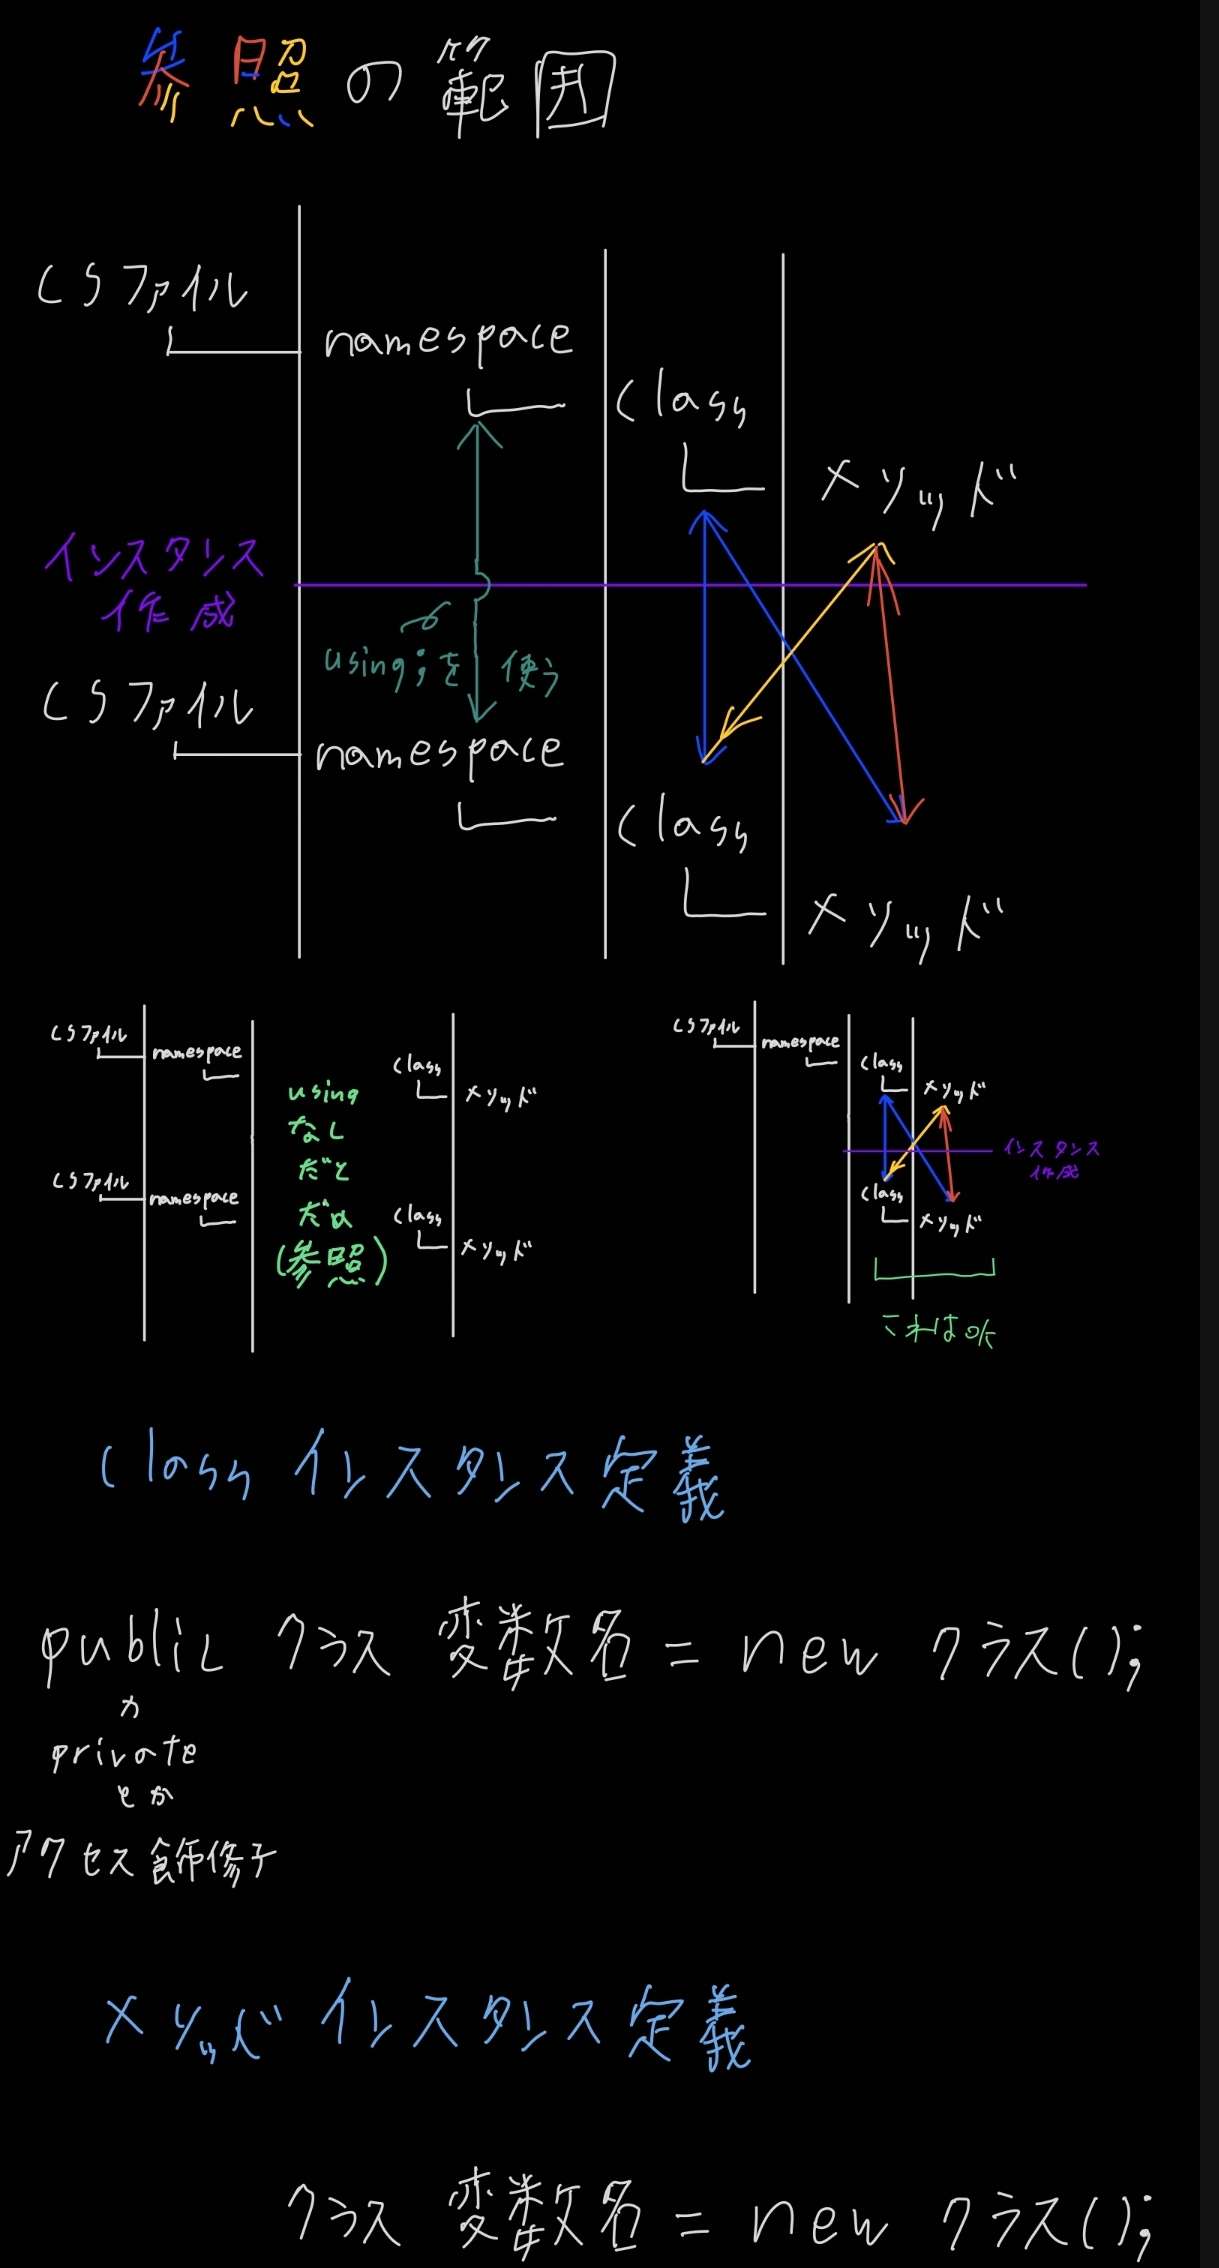 参照の範囲
CSファイル
namespace
class
メソッド
インスタンス
作成
using ;を使う
CSファイル
namespace
class
メソッド
CSファイル
namespace
class
メソッド
using
なし
だと
だめ
(参照)
CSファイル
namespace
class
メソッド
CSファイル
namespace
class
メソッド
インスタンス
作成
class
メソッド
これはOK
class インスタンス定義
public クラス 変数名 = new クラス();
か
private
とか
アクセス飾修子
メソッド インスタンス定義
クラス 変数名 = new クラス();